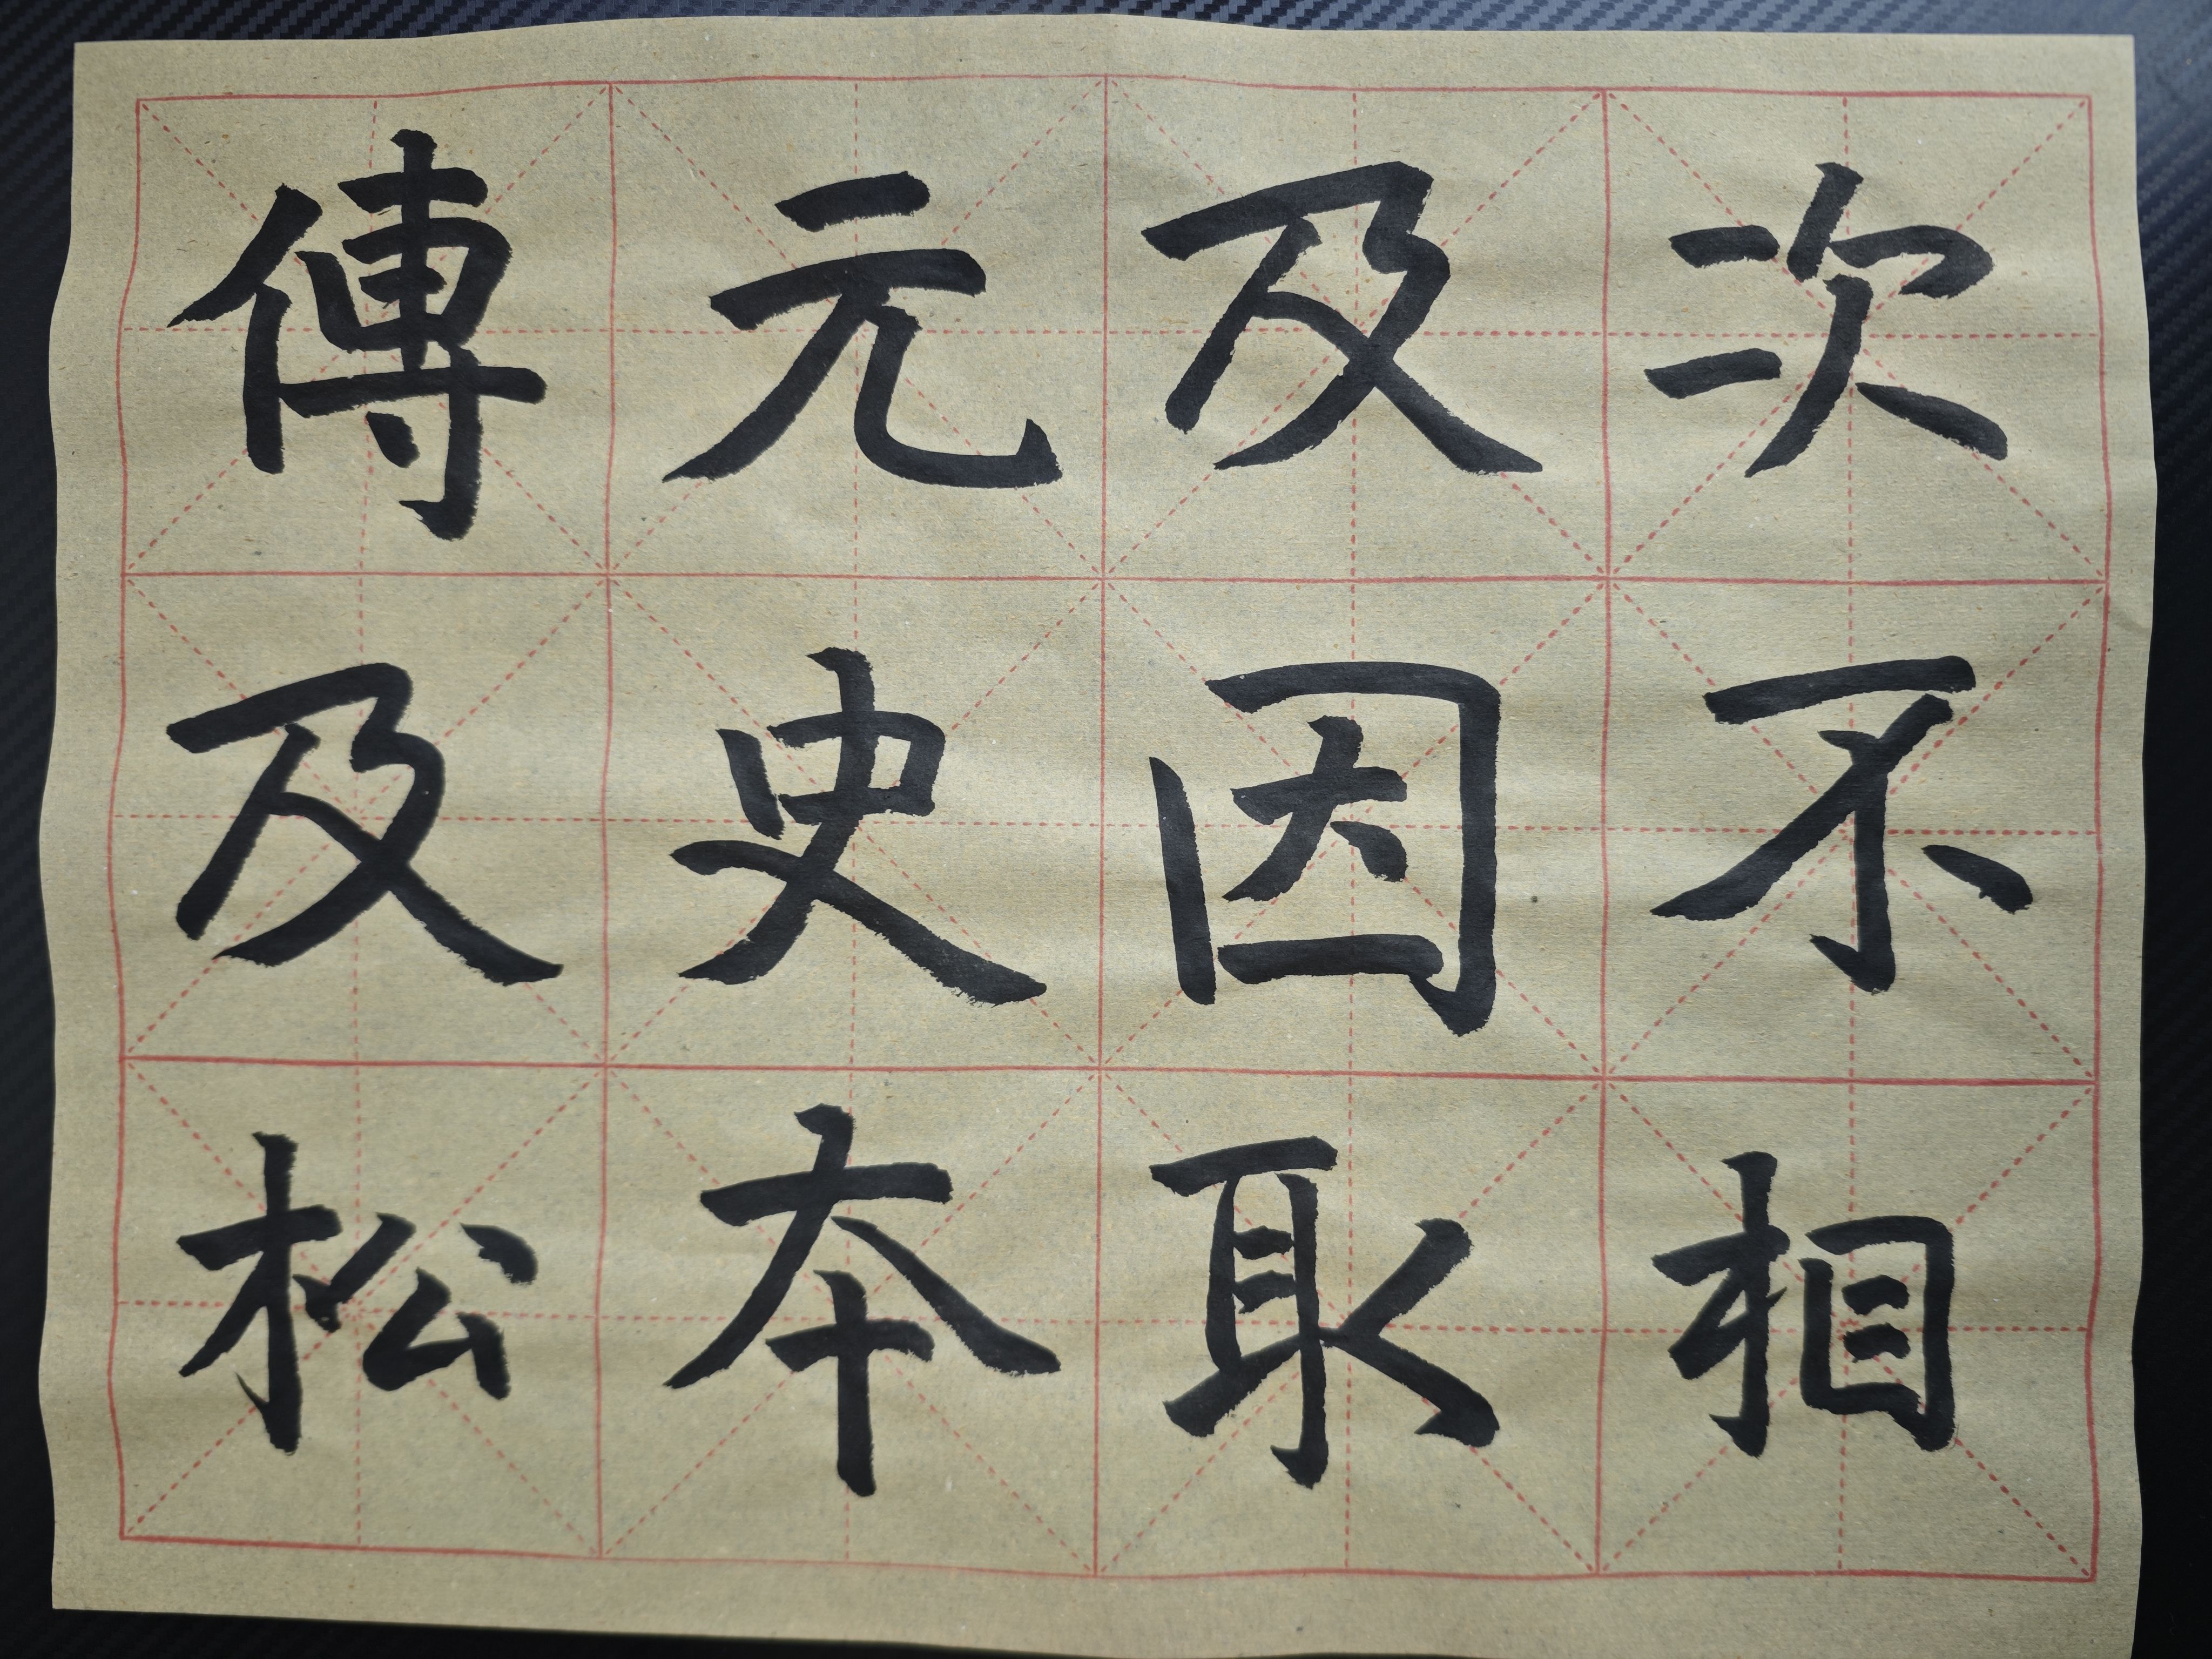 次不相
及因取
元史本
傳及松